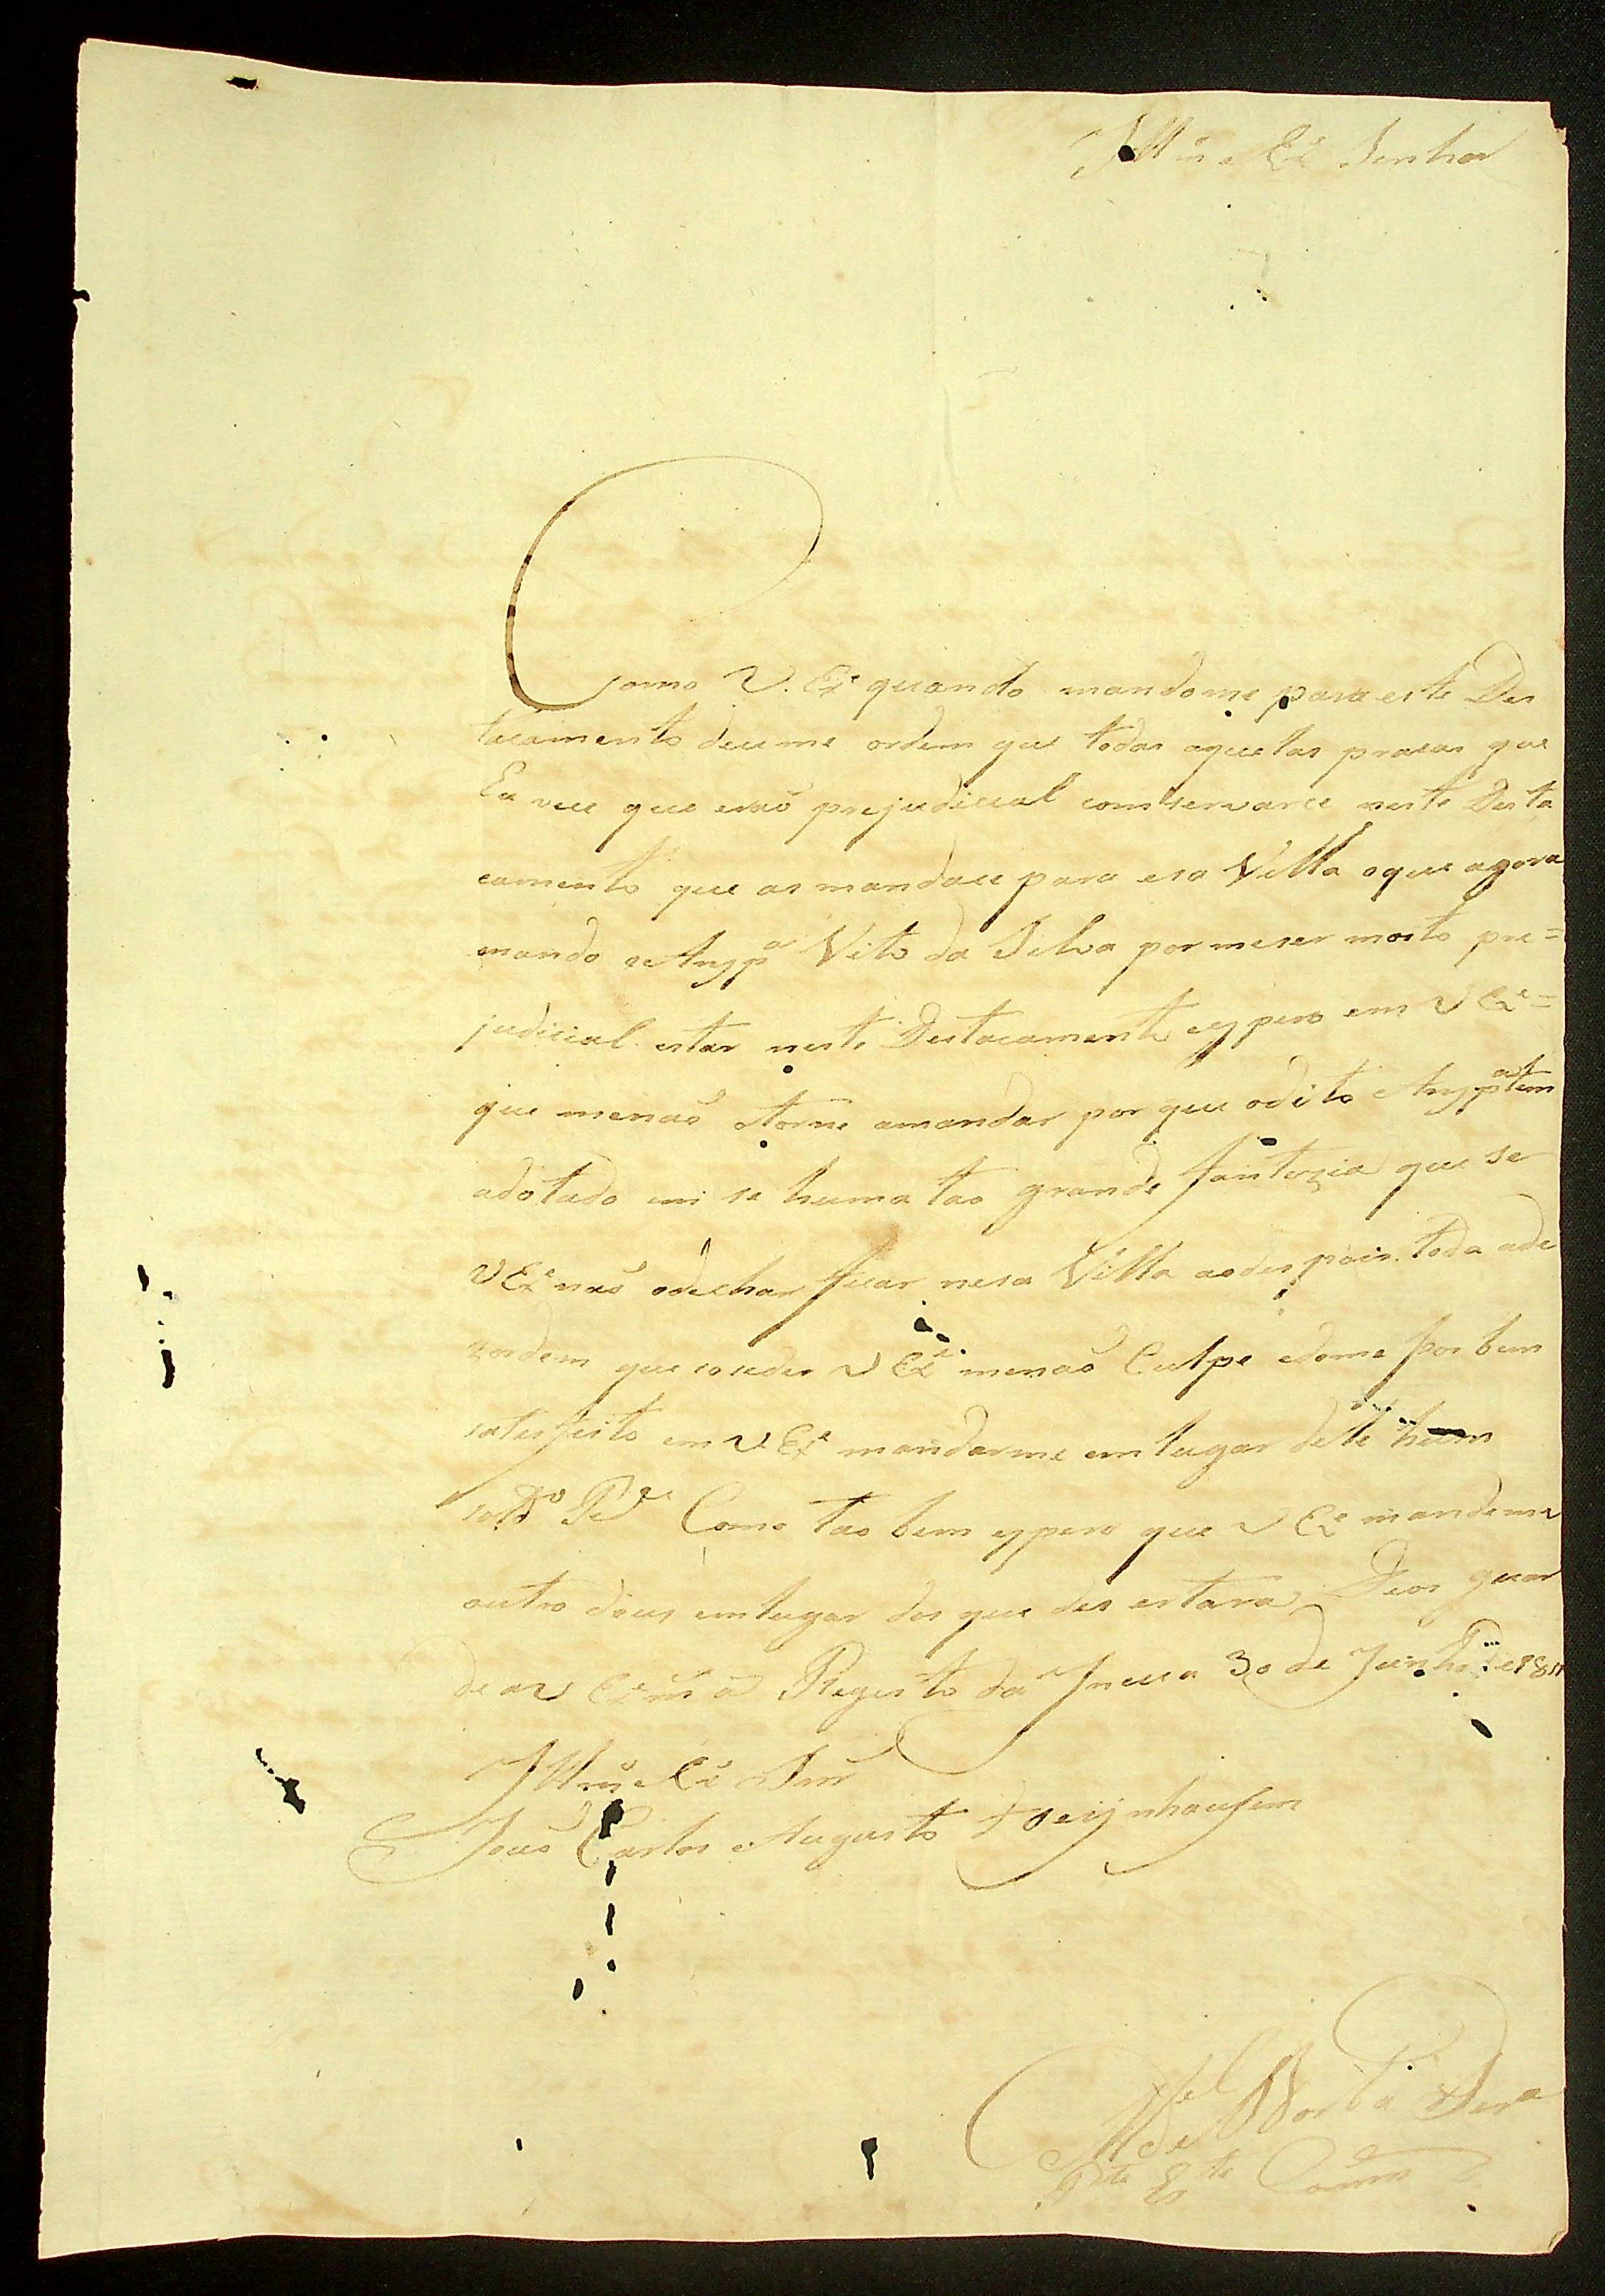 Illm̃ e Exe Senhor
Como V. Exe quando mandome para este Des
tacamento deume ordem que todas aquelas pracas que
Eu vice que eraõ prejudicial comservarce neste Desta
camento que as mandace para esa Villa o que agora
mando o Anspa Vito da Silva por me ser moito pre=
judicial estar neste Destacamento e espero em V Exe=
que me naõ torne amandar por que o dito Anspa tem
adotado em se huma tao grande fantezia que se
V Exe naõ odechar ficar nesa Villa ao despois toda a de
zordem que soseder V Exe me naõ Culpe e dome por bem
satesfeito em V Exe mandarme em lugar dele hum
soldo Pe Como tao bem espero que V Exe mandeme
outro dous em lugar dos que desertara Deos guar
de a V Exe m̃ a Registo da Ineua 30 de Junho de 1811
Illm̃ e Exe Snr̃
Joaõ Carlos Augusto Oeijnhaufem
Mel de Borba Pera
Comde